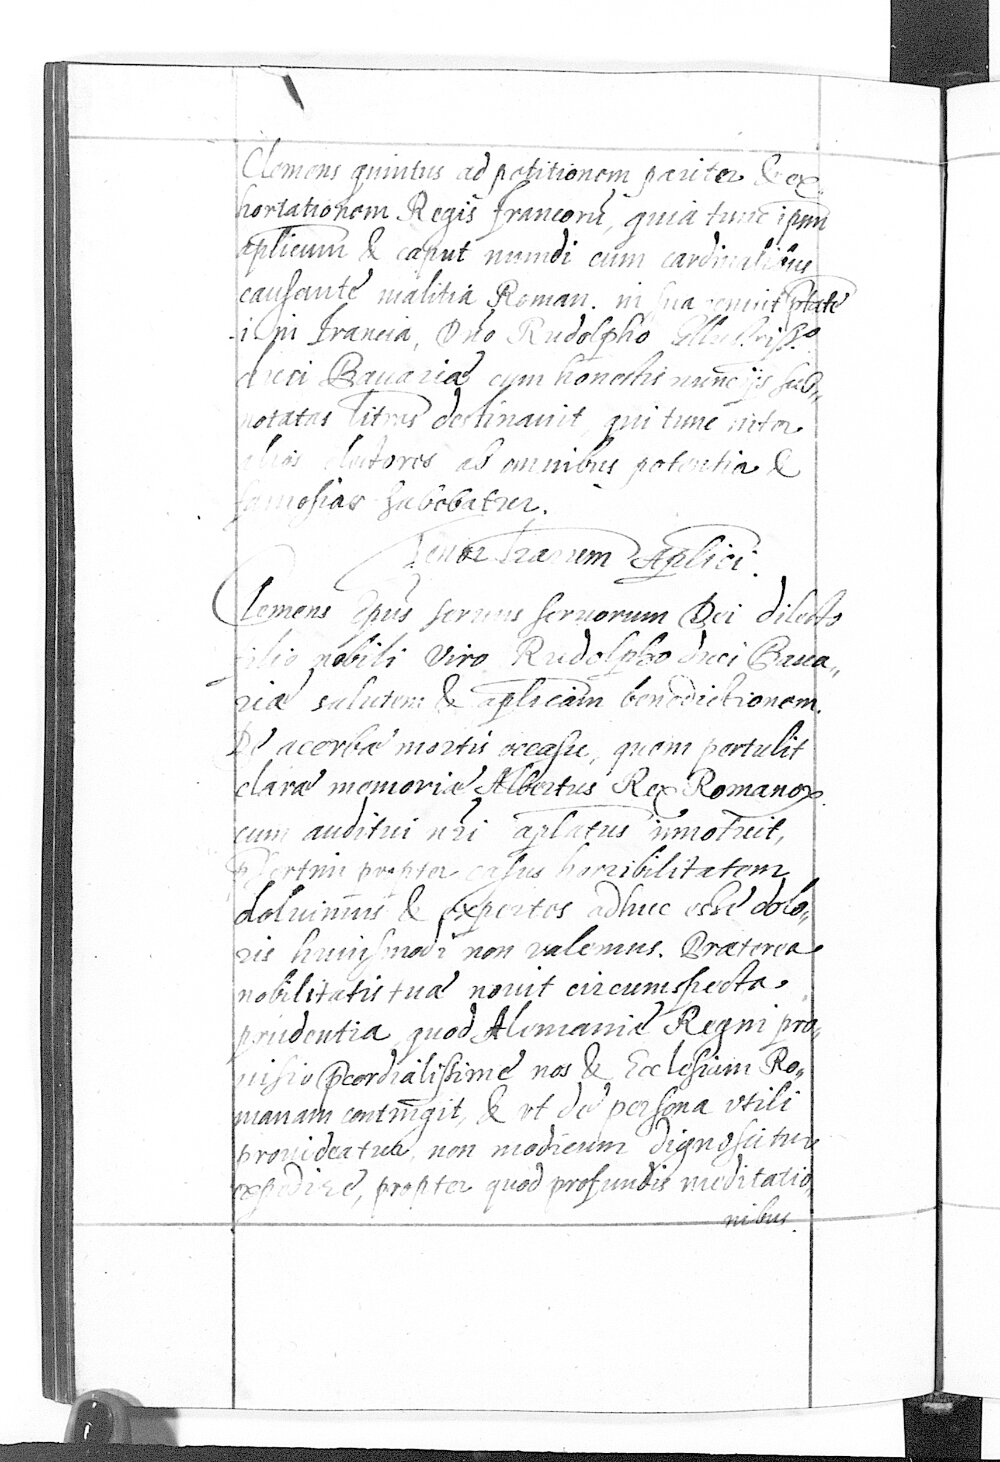 Clemens quintus ad petitionem pariter & ex-
hortationem Regis francorū, quia tunc ipm̄
aplicum & caput mundi cum cardinalibus
causante malitia Roman. in sua tenuit ptāte
i. in francia, Dn̄o Rudolpho Illustriss.o
duci Bavariæ cum honestis nuncijs sub„
notatas litras destinavit, qui tunc inter
alios electores ab omnibus potentia &
famosior habebatur.
Tenor lrarum Aplici.
Clemens epūs servus servorum Dei dilecto
filio nobili viro Rudolpho duci Bava„
riæ salutem & aplicam benedictionem.
De acerbæ mortis occasu, quem pertulit
claræ memoriæ Albertus Rex Romanor.
cum auditui nr̄i aplatus innotuit,
psertim propter casus horribilitatem
doluimus & expertes adhuc esse dolo„
ris huiusmodi non valemus. Præterea
nobilitatis tuæ novit circumspecta
prudentia, quod Alemaniæ Regni pro„
visio pcordialissime nos & Ecclesiam Ro„
manam contingit, & vt de persona vtili
provideatur, non modicum dignoscitur
expedire, propter quod profundis meditatio„
nibus.